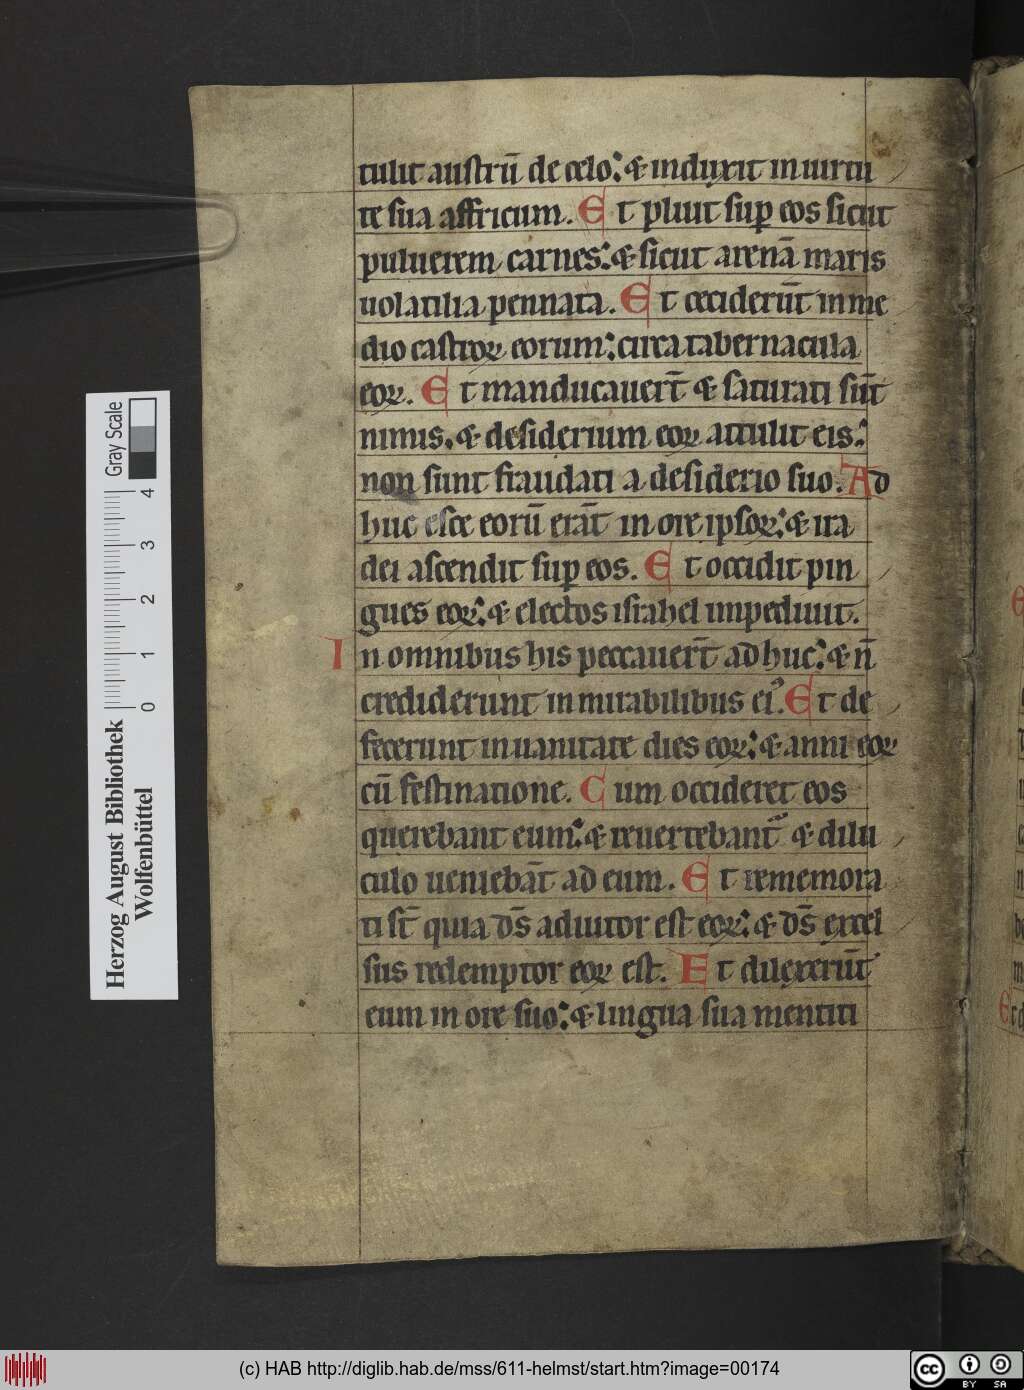 tulit austrū de celo: & induxit in uirtu
te sua affricum. Et pluit sup eos sicut
puluerem carnes: & sicut arenā maris
uolatilia pennata. Et ceciderūt in me
dio castroꝝ eorum: circa tabernacula
eoꝝ. Et manducauerūt & saturati sūt
nimis, & desiderium eoꝝ attulit eis:
non sunt fraudati a desiderio suo. Ad
huc esce eorū erāt in ore ipsoꝝ: & ira
dei ascendit sup eos. Et occidit pin
gues eoꝝ: & electos israhel impediuit.
In omnibus his peccauerūt adhuc: & n̄
crediderunt in mirabilibus ei᾿. Et de
fecerunt in uanitate dies eoꝝ: & anni eoꝝ
cū festinatione. Cum occideret eos
querebant eum: & reuertebant᾿ & dilu
culo ueniebāt ad eum. Et rememora
ti st̄ quia ds̄ adiutor est eoꝝ: & ds̄ excel
sus redemptor eoꝝ est. Et dilexerūt
eum in ore suo: & lingua sua mentiti
Herzog August Bibliothek
Wolfenbüttel
0 1 2 3 4
Gray Scale
(c) HAB http://diglib.hab.de/mss/611-helmst/start.htm?image=00174
cc BY SA